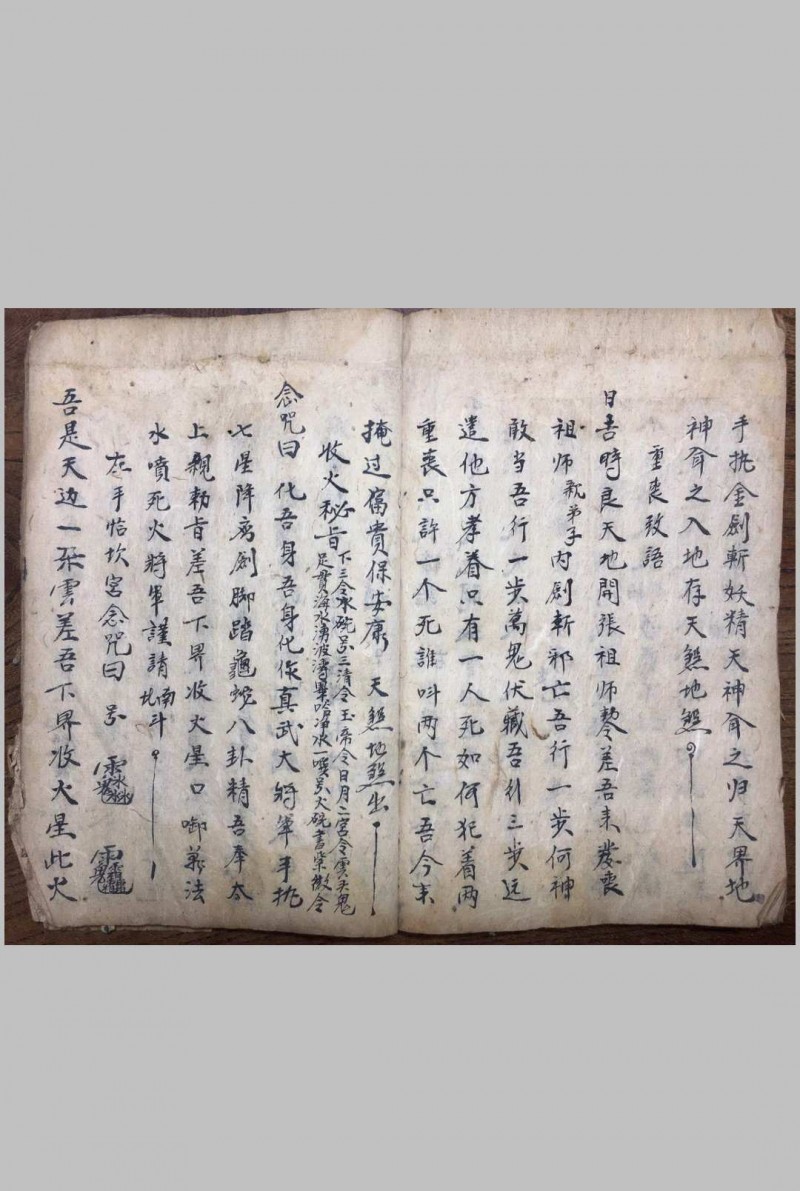 手执金剑斬妖精天神斉之归天界地
神斉之入地存天煞地煞
重喪致語
日吉時良天地開張祖师差吾来發喪
祖师亲弟子内剑斬邪亡吾行一步何神
敢当吾行一步萬鬼伏藏吾行三步远
遣他方孝眷只有一人死如何犯着两
重喪只許一个死誰叫两个亡吾今来
掩过富貴保安康天煞地煞出
收火秘旨
下三令水碗号三清令玉帝令日月二宫令雲天鬼
足賛海水湧波濤畢吟净水一噴号火碗書紫微令
念咒曰化吾身吾身化作真武大将軍手执
七星降魔剑脚踏龜蛇八卦精吾奉太
上親勅旨差吾下界收火星口啣美法
水噴死火將軍謹請南北斗
左手恰坎宮念咒曰号
吾是天边一朵雲差吾下界收火星此火